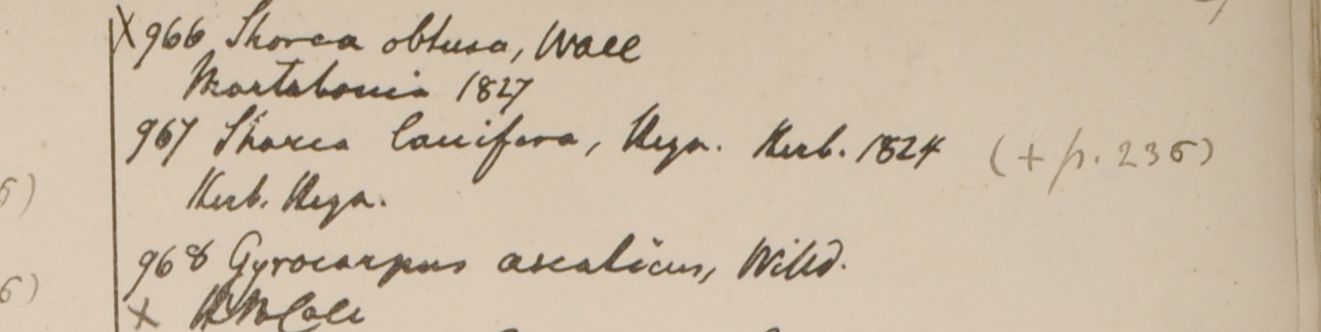 X 966 Shorea obtusa, Wall
Martabania 1827
967 Shorea laccifera, Heyn. Herb. 1824 (+ p. 236)
Herb. Heyn.
968 Gyrocarpus asiaticus, Willd.
X
6)
6)